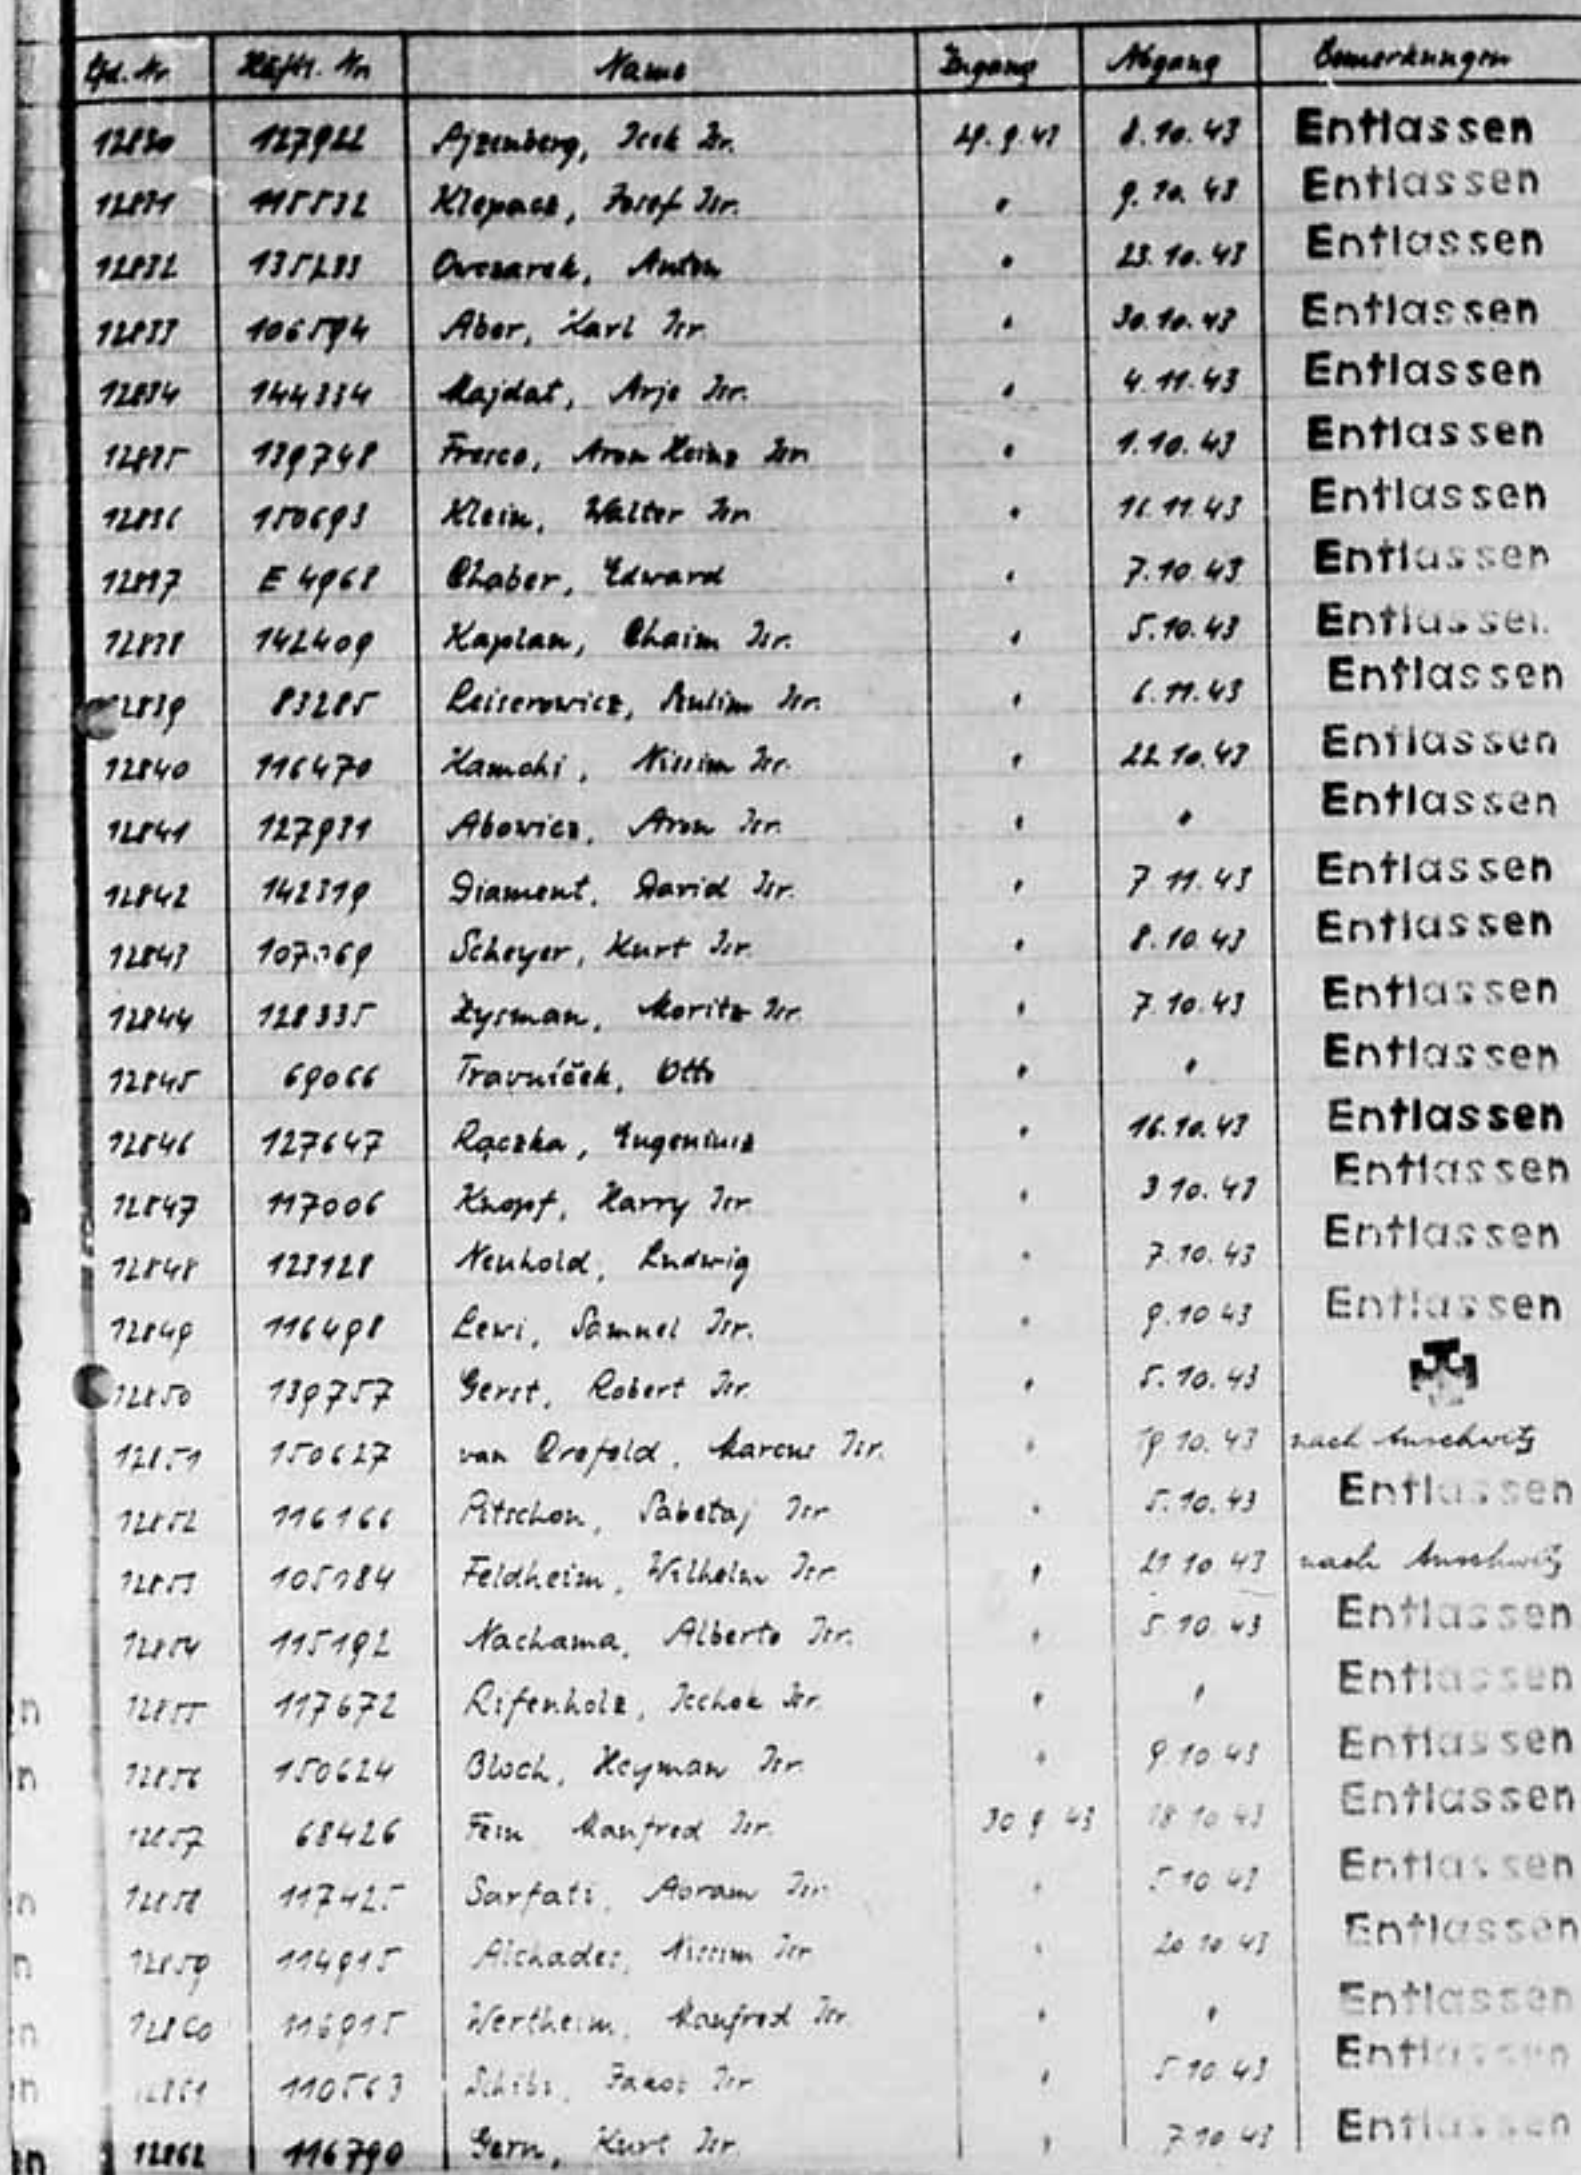 Lfd. Nr. Häftl. Nr. Name Zugang Abgang Bemerkungen
12830 127922 Ajzenberg, Icek Isr. 29.9.43 8.10.43 Entlassen
12831 115532 Klepacz, Josef Isr. " 9.10.43 Entlassen
12832 135233 Owczarek, Anton " 23.10.43 Entlassen
12833 106594 Aber, Karl Isr. " 30.10.43 Entlassen
12834 144334 Majdat, Arje Isr. " 4.11.43 Entlassen
12835 139748 Fresco, Aron Heinz Isr. " 1.10.43 Entlassen
12836 150693 Klein, Walter Isr. " 16.11.43 Entlassen
12837 E 4968 Chaber, Edward " 7.10.43 Entlassen
12838 142409 Kaplan, Chaim Isr. " 5.10.43 Entlassen
12839 83285 Leiserowicz, Isr. " 6.11.43 Entlassen
12840 116470 Kamchi, Nissim Isr. " 22.10.43 Entlassen
12841 127931 Abowicz, Aron Isr. " " Entlassen
12842 142319 Diament, David Isr. " 7.11.43 Entlassen
12843 Scheyer, Kurt Isr. " 8.10.43 Entlassen
12844 128335 Zysman, Moritz Isr. " 7.10.43 Entlassen
12845 69066 Travníček, Otto " " Entlassen
12846 127647 Rączka, Eugeniusz " 16.10.43 Entlassen
12847 117006 Knopf, Harry Isr. " 3.10.43 Entlassen
12848 123128 Neuhold, Ludwig " 7.10.43 Entlassen
12849 116498 Lewi, Samuel Isr. " 9.10.43 Entlassen
12850 139757 Gerst, Robert Isr. " 5.10.43
12851 150627 van Crefeld, Marcus Isr. " 19.10.43 nach Auschwitz
12852 116166 Pitschon, Sabetaj Isr. " 5.10.43 Entlassen
12853 105184 Feldheim, Wilhelm Isr. " 21.10.43 nach Auschwitz
12854 115192 Nachama, Alberto Isr. " 5.10.43 Entlassen
12855 117672 Rifenholz, Icchok Isr. " " Entlassen
12856 150624 Bloch, Heyman Isr. " 9.10.43 Entlassen
12857 68426 Fein Manfred Isr. 30.9.43 18.10.43 Entlassen
12858 117425 Sarfati, Abram Isr. " 5.10.43 Entlassen
12859 114915 Alchades, Nissim Isr. " 20.10.43 Entlassen
12860 116915 Wertheim, Manfred Isr. " " Entlassen
12861 110563 Jakob Isr. " 5.10.43 Entlassen
12862 116790 Gern, Kurt Isr. " 7.10.43 Entlassen